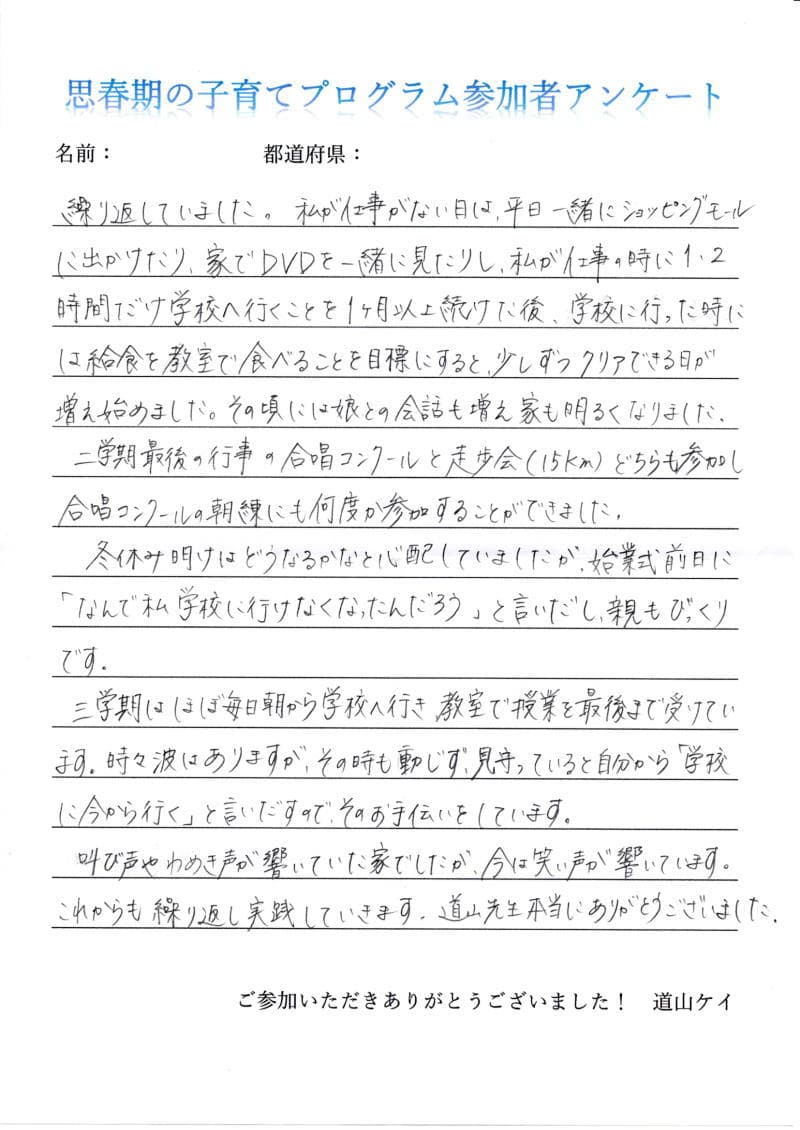 思春期の子育てプログラム参加者アンケート
名前： 都道府県：
繰り返していました。私が仕事がない日は、平日一緒にショッピングモール
に出かけたり、家でDVDを一緒に見たりし、私が仕事の時に1、2
時間だけ学校へ行くことを1ヶ月以上続けた後、学校に行った時に
は給食を教室で食べることを目標にすると、少しずつクリアできる日が
増え始めました。その頃には娘との会話も増え家も明るくなりました。
二学期最後の行事の合唱コンクールと走歩会(15km)どちらも参加し
合唱コンクールの朝練にも何度か参加することができました。
冬休み明けはどうなるかなと心配していましたが、始業式前日に
「なんで私学校に行けなくなったんだろう」と言いだし、親もびっくり
です。
三学期はほぼ毎日朝から学校へ行き、教室で授業を最後まで受けてい
ます。時々波はありますが、その時も動じず、見守っていると自分から「学校
に今から行く」と言いだすので、そのお手伝いをしています。
叫び声やわめき声が響いていた家でしたが、今は笑い声が響いています。
これからも繰り返し実践していきます。道山先生本当にありがとうございました。
ご参加いただきありがとうございました！ 道山ケイ